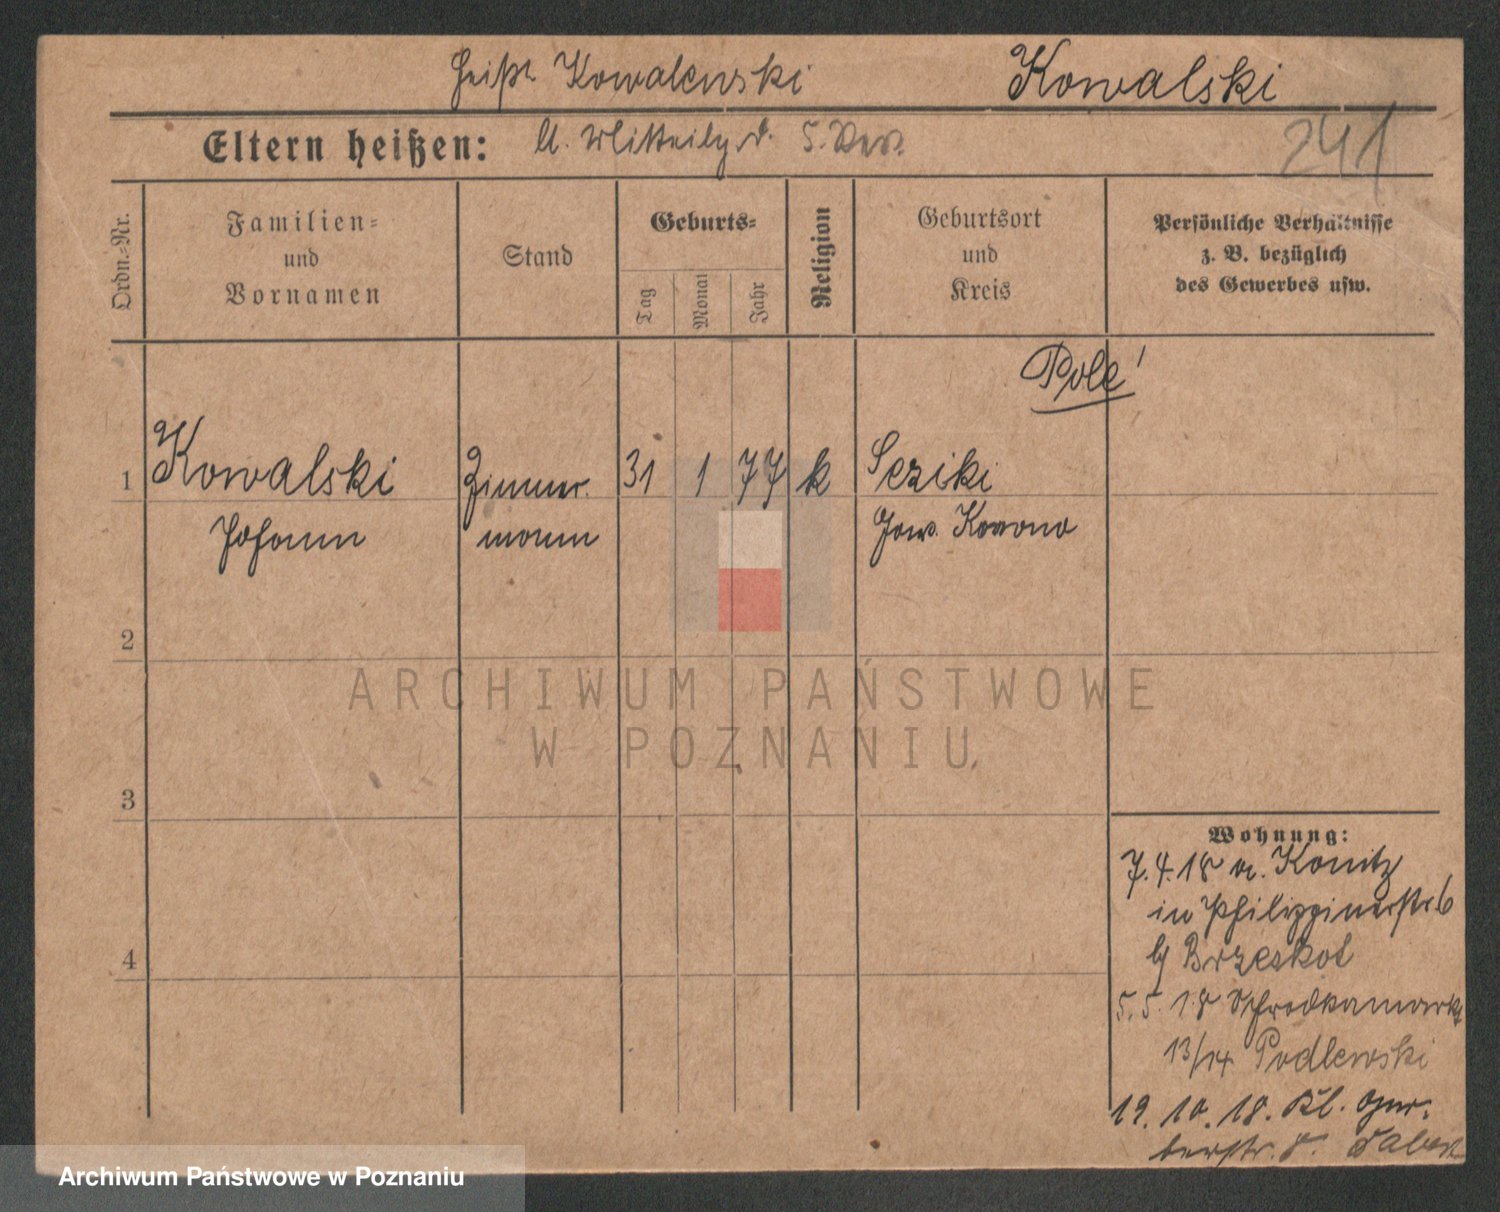 heißt Kowalewski
Kowalski
Eltern heißen: lt. Mitteilg. d. 5. Rev.
241
Ordn.-Nr.
Familien-
und
Vornamen
Stand
Geburts-
Tag
Monat
Jahr
Religion
Geburtsort
und
Kreis
Persönliche Verhältnisse
z. B. bezüglich
des Gewerbes usw.
Pole
1 Kowalski Zimmer. 31 1 77 k
Johann mann
2
3
4
Wohnung:
7.4.18 v. Konitz
in Philippinerstr 6
b/ Brzeskot
5.5.18 Schrodkamarkt
13/14 Podlewski
19.10.18. Kl. Ger-
berstr. 8.
ARCHIWUM PAŃSTWOWE
W POZNANIU
Archiwum Państwowe w Poznaniu